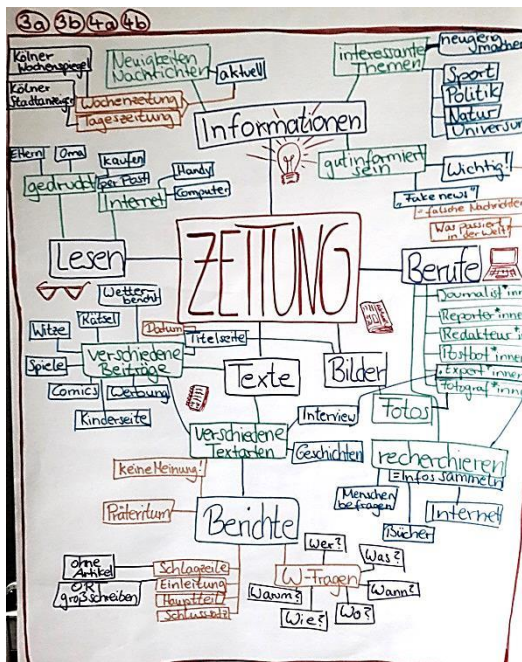 3a 3b 4a 4b
Kölner
Wochenspiegel
Kölner
Stadtanzeiger
Wochenzeitung
Tageszeitung
Neuigkeiten
Nachrichten
aktuell
Informationen
interessante
Themen
neugierig
machen
Sport
Politik
Natur
Universum
gut informiert
sein
Wichtig!
"Fake news"
= falsche Nachrichten
Was passiert
in der Welt?
Eltern
Oma
gedruckt
kaufen
per Post
Internet
Handy
Computer
Lesen
ZEITUNG
Berufe
Journalist*innen
Reporter*innen
Redakteur*innen
Postbot*innen
Expert*innen
Fotograf*innen
Wetter-
bericht
Rätsel
Witze
Spiele
Comics
Kinderseite
Werbung
verschiedene
Beiträge
Datum
Titelseite
Texte
Bilder
Fotos
Interview
Geschichten
verschiedene
Textarten
recherchieren
=Infos sammeln
Menschen
befragen
Bücher
Internet
keine Meinung!
Präteritum
Berichte
ohne
Artikel
großschreiben
Schlagzeile
Einleitung
Hauptteil
Schlusssatz
W-Fragen
Wer?
Was?
Wann?
Wo?
Wie?
Warum?